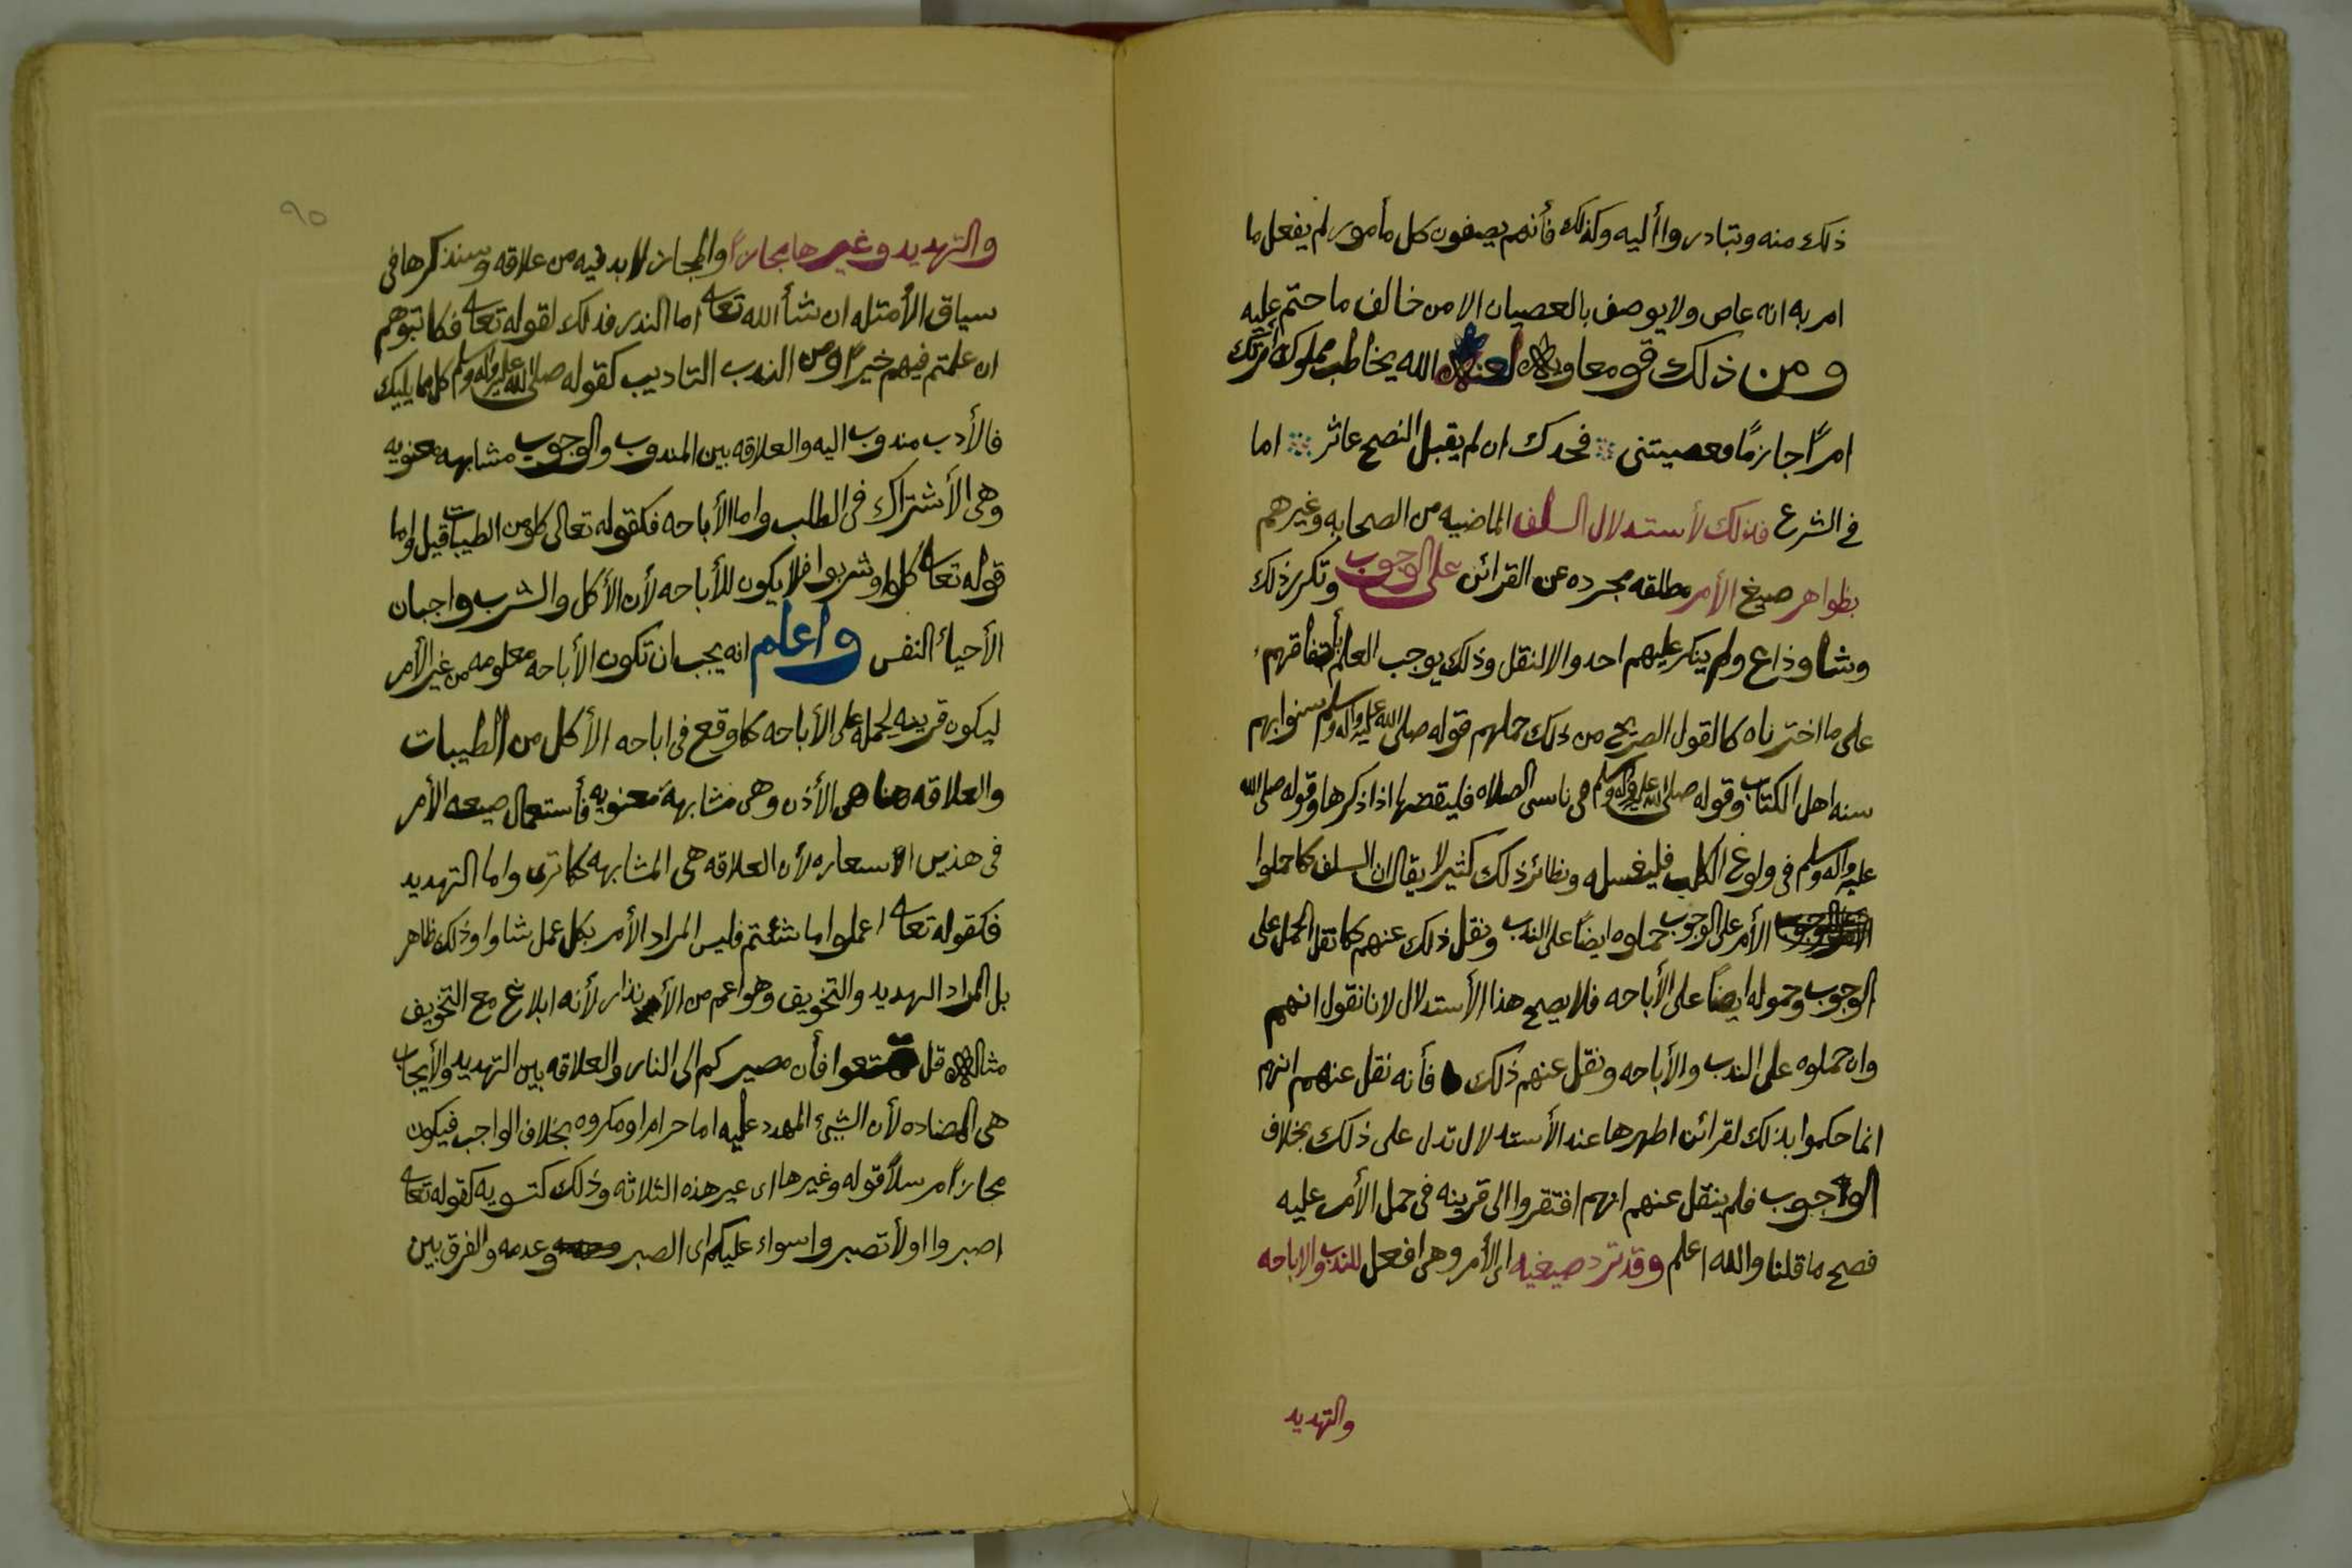 ذلك منه ويتبادروا أليه وكذلك فأنهم يصفون كل مأمور لم يفعل ما
امر به انه عاص ولا يوصف بالعصيان الا من خالف ما حتم عليه
ومن ذلك قو معاويه لعنه الله يخاطب مملوكه أمرتك
امرًا جازمًا فعصيتنى فحدك ان لم يقبل النصح عاثر اما
فى الشرع فذلك لأستدلال السلف الماضيه من الصحابه وغيرهم
بظواهر صيغ الأمر مطلقه مجرده عن القرائن على الوجوب وتكرر ذلك
وشاوذاع ولم ينكر عليهم احد والا لنقل وذلك يوجب العلم بأتفاقهم
على ما اخترناه كالقول الصريح من ذلك حملهم قوله صلى الله عليه واله وسلم سنوا بهم
سنه اهل الكتاب وقوله صلى الله عليه واله وسلم فى ناسى الصلاه فليقضها اذا ذكرها وقوله صلى الله
عليه واله وسلم فى ولوغ الكلب فليغسله ونظائر ذلك كثير لا يقال ان السلف كما حملوا
الأمر على الوجوب حملوه ايضًا على الندب ونقل ذلك عنهم كما نقل الحمل على
الوجوب وحموله ايضًا على الأباحه فلا يصح هذا الأستدلال لانا نقول انهم
وان حملوه على الندب والأباحه ونقل عنهم ذلك فأنه نقل عنهم انهم
انما حكموا بذلك لقرائن اظهرها عند الأستدلال تدل على ذلك بخلاف
الوجوب فلم ينقل عنهم انهم افتقروا الى قرينه فى حمل الأمر عليه
فصح ما قلنا والله اعلم وقد ترد صيغيه اى الأمر وهى افعل للندب والاباحه
والتهديد
٩٥
والتهديد وغيرها مجازاً والمجاز لا بد فيه من علاقه وسنذكرها فى
سياق الأمثله ان شأ الله تعالى اما الندر فذلك لقوله تعالى فكاتبوهم
ان علمتم فيهم خيراً ومن الندب التاديب كقوله صلى الله عليه واله وسلم كل مما يليك
فالأدب مندوب اليه والعلاقه بين المندوب والوجوب مشابهه معنويه
وهى الأشتراك فى الطلب واما الأباحه فكقوله تعالى كلو من الطيبات قيل واما
قوله تعالى كلوا وشربوا فلا يكون للأباحه لأن الأكل والشرب واجبان
الأحيأ النفس واعلم انه يجب ان تكون الأباحه معلومه من غير الأمر
ليكون قرينه لحمله على الأباحه كما وقع فى اباحه الأكل من الطيبات
والعلاقه هنا هى الأذن وهى مشابهة معنويه فأستعمال صيعه الأمر
فى هذين الاسعاره لأن العلاقه هى المشابهه كما ترى واما التهديد
فكقوله تعالى اعملوا ما شئتم فليس المراد الأمر بكل عمل شاوا وذلك ظاهر
بل المراد التهديد والتخويف وهو اعم من الأنذار لأنه ابلاغ مع التخويف
مثاله قل تمتعوا فأن مصيركم الى النار والعلاقه بين التهديد والأيجاب
هى المضاده لأن الشئ المهدد عليه اما حرام او مكروه بخلاف الواجب فيكون
مجازاً مرسلاً قوله وغيرها اى غير هذه الثلاثه وذلك كتسويه كقوله تعالى
اصبروا اولأ تصبروا سواء عليكم اى الصبر وعدمه والفرق بين